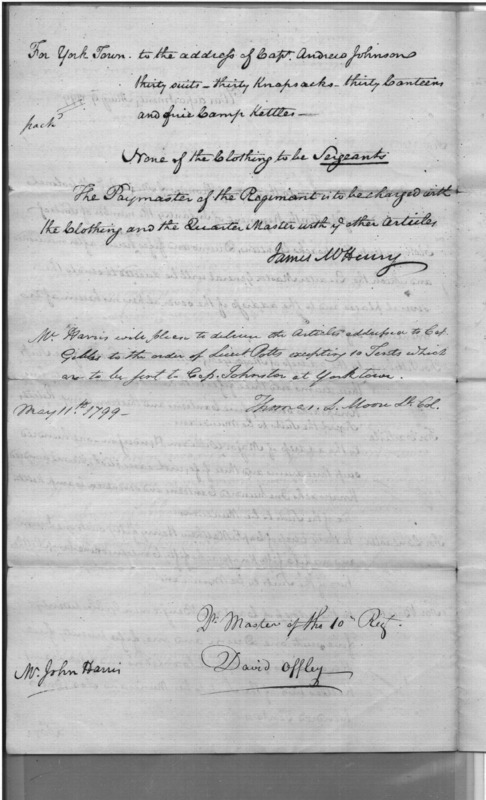 For York Town. to the address of Capt. Andrew Johnson
thirty suits - thirty Knapsacks - thirty Canteens
packd
and five Camp Kettles -
None of the Clothing to be Sergeants
The Paymaster of the Regiment is to be charged with
the Clothing and the Quarter Master with ye other Articles
James McHenry
Mr. Harris will please to deliver the Articles addressed to Cap.
Gibbs to the order of Lieut Potts excepting 10 Tents which
are to be sent to Cap. Johnston at York town.
May 11th. 1799 -
Thomas. L. Moore Lt. Col.
Qr. Master of the 10th Regt.
David Offley
Mr. John Harris